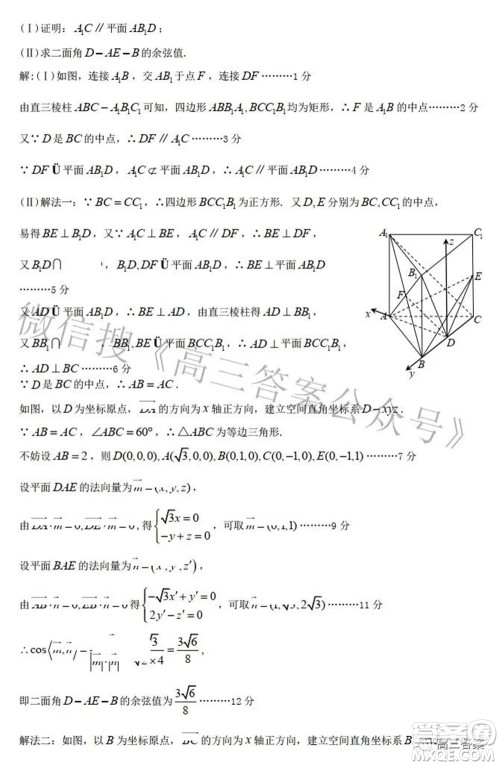 (Ⅰ)证明:A₁C∥平面AB₁D;
(Ⅱ)求二面角D-AE-B的余弦值.
解:(Ⅰ)如图,连接A₁B,交AB₁于点F,连接DF ………1分
由直三棱柱ABC-A₁B₁C₁可知,四边形ABB₁A₁,BCC₁B₁均为矩形,∴F是A₁B的中点………2分
又∵D是BC的中点,∴DF∥A₁C ………3分
∵DF Ü平面AB₁D,A₁C⊄平面AB₁D,∴A₁C∥平面AB₁D ………4分
(Ⅱ)解法一:∵BC=CC₁,∴四边形BCC₁B₁为正方形. 又D,E分别为BC,CC₁的中点,
易得BE⊥B₁D,又∵A₁C⊥BE,∴DF⊥BE,
又B₁D∩ ,B₁D,DF Ü平面AB₁D,∴BE⊥平面AB₁D
………5分
又AD Ü平面AB₁D,∴BE⊥AD,由直三棱柱得BB₁⊥AD,
又BB₁∩ ,BB₁ Ü平面BCC₁B₁,∴AD⊥平面BCC₁B₁,
∴AD⊥BC ………6分
∵D是BC的中点,∴AB=AC.
如图,以D为坐标原点,DA的方向为x轴正方向,建立空间直角坐标系D-xyz.
∵AB=AC,∠ABC=60°,∴△ABC为等边三角形.
不妨设AB=2,则D(0,0,0),A(√3,0,0),B(0,1,0),C(0,-1,0),E(0,-1,1) ………7分
设平面DAE的法向量为m=(x,y,z),
由DA·m=0,DE·m=0,得{√3x=0 -y+z=0,可取m=(0,1,1) ………9分
设平面BAE的法向量为n=(x′,y′,z′)
由AB·n=0,EB·n=0得{-√3x′+y′=0 2y′-z′=0,可取n=(1,√3,2√3) ………11分
∴cos⟨m,n⟩= =3√6/8,
即二面角D-AE-B的余弦值为3√6/8 ………12分
解法二:如图,以B为坐标原点,BC的方向为x轴正方向,建立空间直角坐标系
A₁
C₁
z
B₁
E
F
x
A
C
D
B
y
微信搜《高三答案公众号》
高三答案